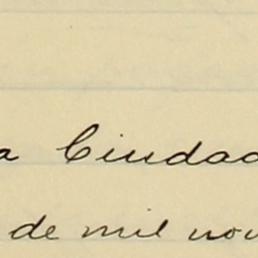 a Ciudad
de mil nov